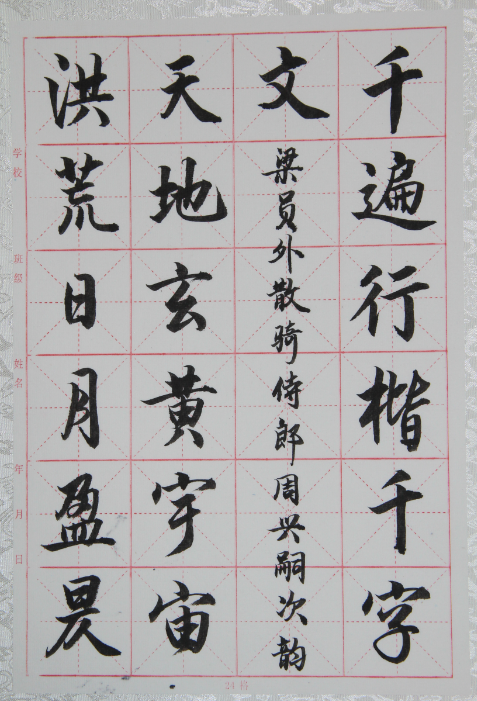 千遍行楷千字
文
梁员外散骑侍郎周兴嗣次韵
天地玄黄宇宙
洪荒日月盈昃
学校
班级
姓名
年 月 日
24格